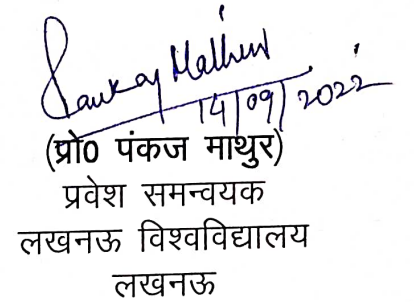 Pankaj Mathur
14/09/2022
(प्रो0 पंकज माथुर)
प्रवेश समन्वयक
लखनऊ विश्वविद्यालय
लखनऊ